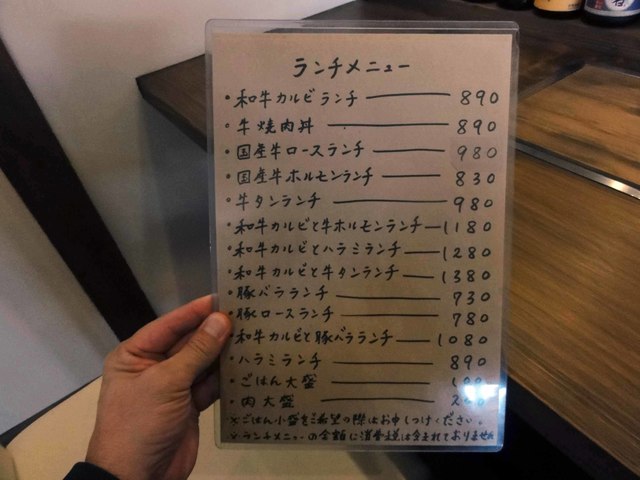 ランチメニュー
・和牛カルビランチ 890
・牛焼肉丼 890
・国産牛ロースランチ 980
・国産牛ホルモンランチ 830
・牛タンランチ 980
・和牛カルビと牛ホルモンランチ 1180
・和牛カルビとハラミランチ 1280
・和牛カルビと牛タンランチ 1380
・豚バラランチ 730
・豚ロースランチ 780
・和牛カルビと豚バラランチ 1080
・ハラミランチ 890
・ごはん大盛
・肉大盛
※ごはん小盛をご希望の際はお申しつけください。
※ランチメニューの金額に消費税は含まれておりません